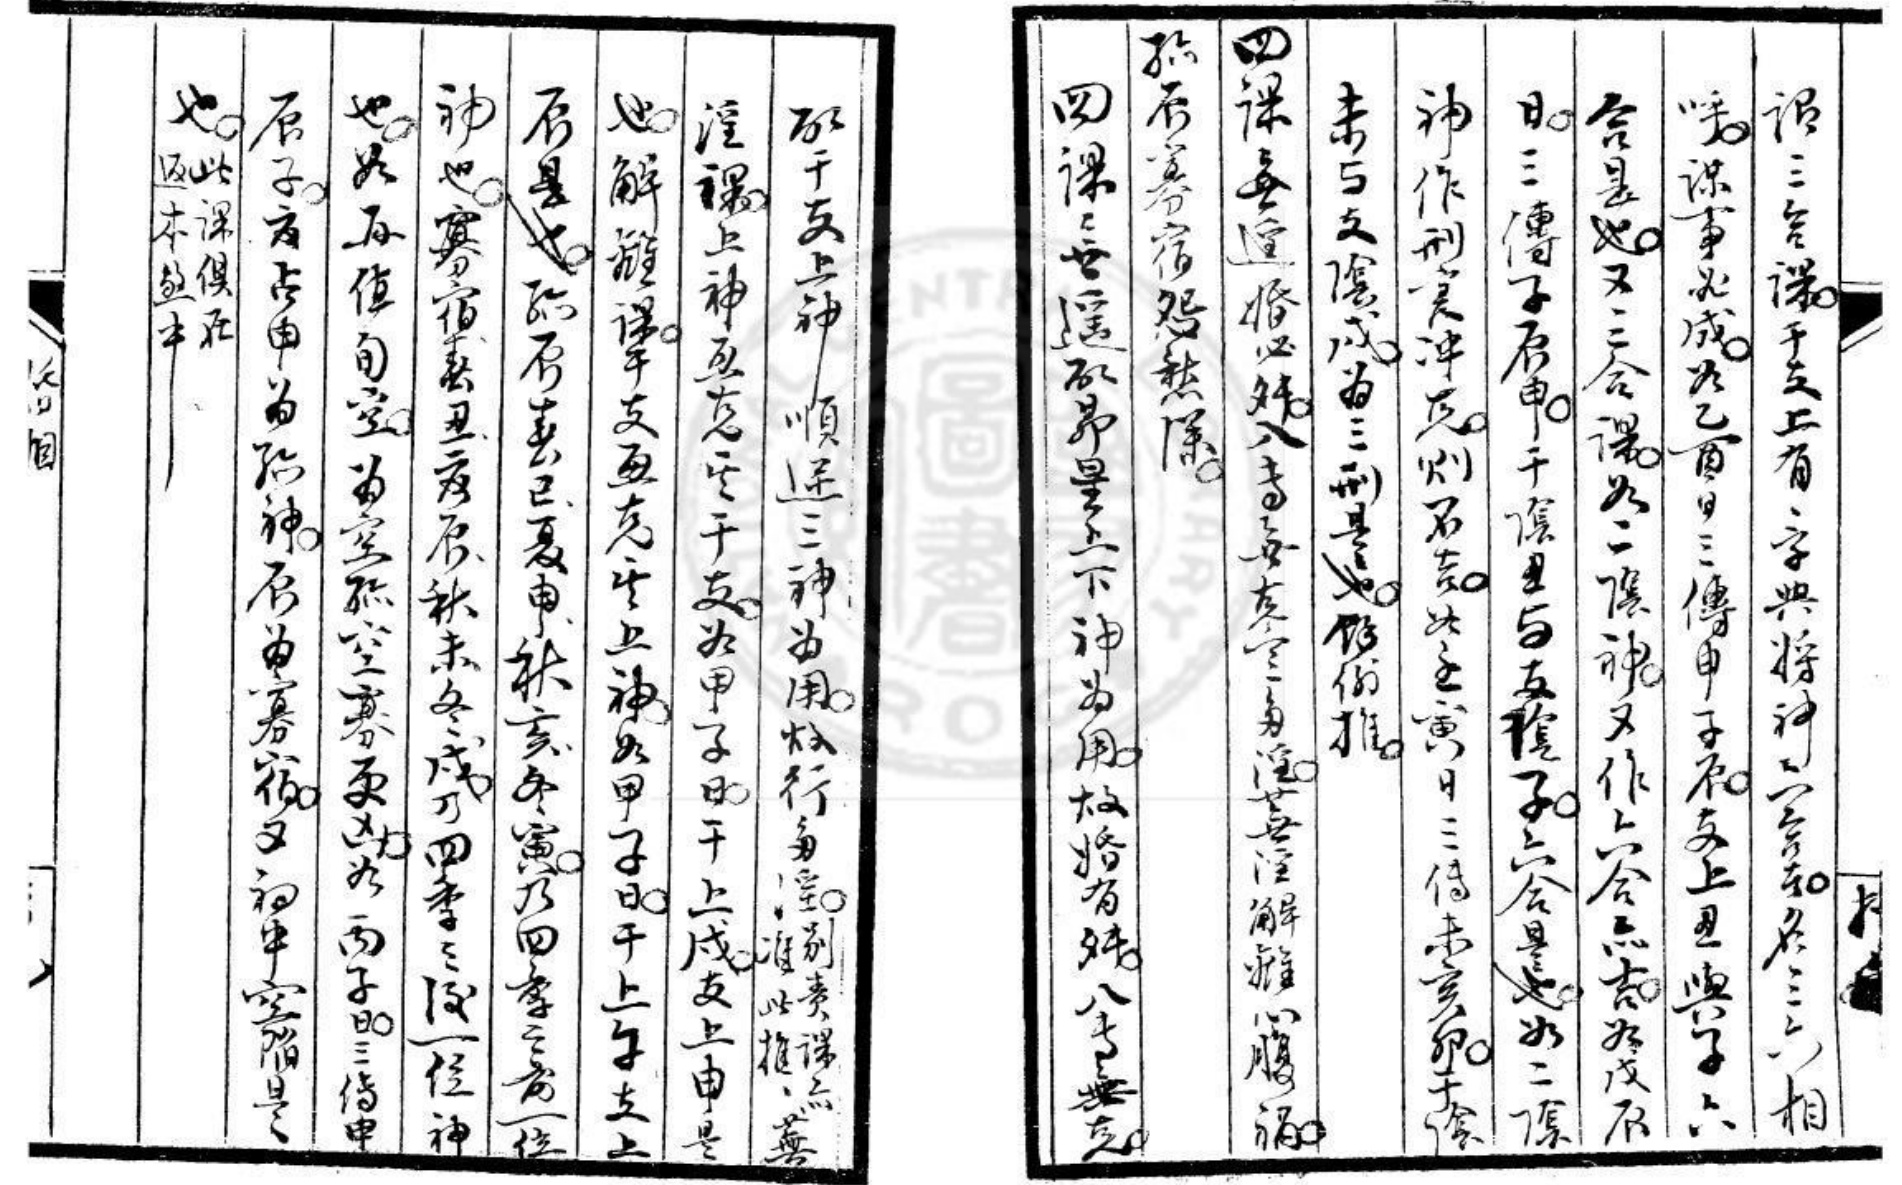 謂三合課。干支上有一字與將神六合者。名三六相
呼。謀事必成。如乙酉日三傳申子辰。支上丑與子六
合是也。又三合課。如二陰神。又作六合亦吉。如戊辰
日。三傳子辰申。干陰丑与支陰子。六合是也。如二陰
神作刑害冲克。則不吉。如壬寅日三傳未亥卯。干陰
未与支陰戌。為三刑是也。餘倣推。
四課無遥婚必殃。八专無克亦多淫。蕪淫解離心腹禍。
孤辰寡宿怨愁深。
四課之無遥取昴星上下神为用。故婚有殃。八专無克。
取干支上神順逆三神为用。故行多淫。
别責課亦准此推、蕪
淫課。上神互克其干支。如甲子日。干上戌。支上申是
也。解離課。干支互克其上神。如甲子日。干上午支上
辰是也。孤辰春巳、夏申、秋亥、冬寅。乃四季之前一位
神也。寡宿春丑、夏辰、秋未、冬戌。乃四季之後一位神
也。如再值旬空。为空孤空寡更凶。如丙子日。三傳申
辰子。夏占申为孤神。辰为寡宿。又初中空陷是
也。
此課俱在
返本煞中